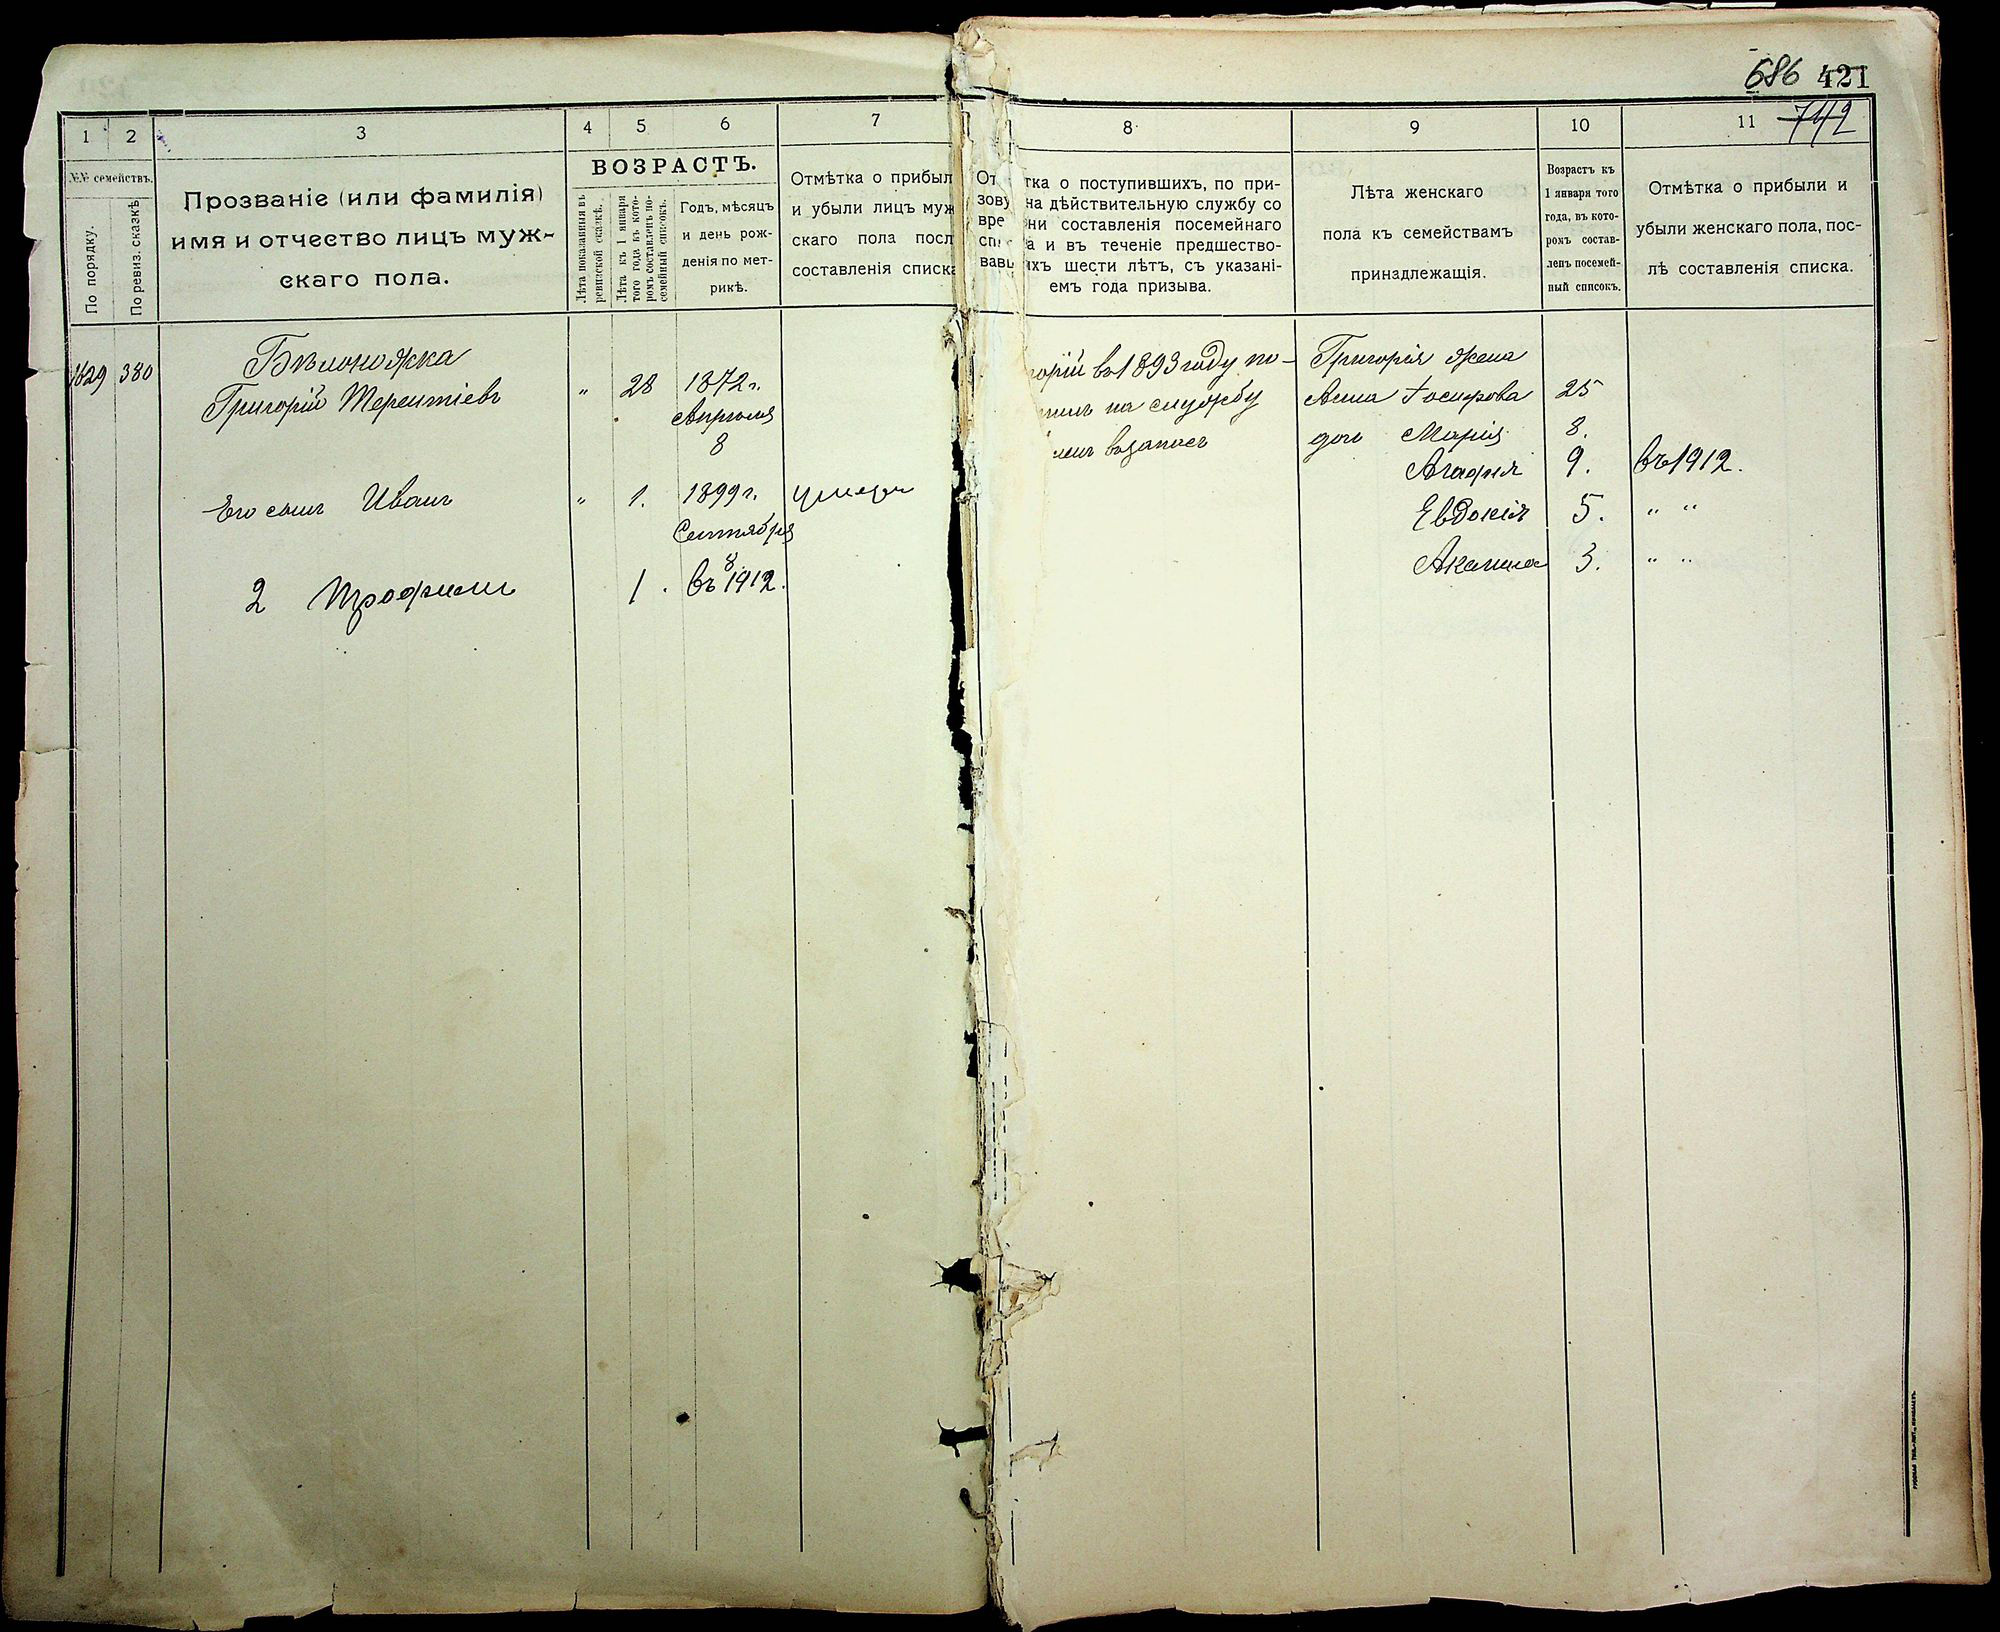 686 421
742
1 2 3 4 5 6 7 8 9 10 11
№№ семействъ.
По порядку.
По ревиз. сказкѣ
Прозваніе (или фамилія)
имя и отчество лицъ муж-
скаго пола.
ВОЗРАСТЪ.
Лѣта показанныя въ
ревизской сказкѣ.
Лѣта къ 1 января
того года въ кото-
ромъ составленъ по-
семейный списокъ.
Годъ, мѣсяцъ
и день рож-
денія по мет-
рикѣ.
Отмѣтка о прибыл
и убыли лицъ муж
скаго пола посл
составленія списка
От тка о поступившихъ, по при-
зову на дѣйствительную службу со
вре ни составленія посемейнаго
спис а и въ теченіе предшество-
вавш ихъ шести лѣтъ, съ указані-
емъ года призыва.
Лѣта женскаго
пола къ семействамъ
принадлежащія.
Возрастъ къ
1 января того
года, въ кото-
ромъ состав-
ленъ посемей-
ный списокъ.
Отмѣтка о прибыли и
убыли женскаго пола, пос-
лѣ составленія списка.
1829 380 Бѣлоножка
Григорій Терентіевъ " 28 1872 г.
Апрѣля
8
Его сынъ Иванъ " 1. 1899 г. умеръ
Сентября
8
2 Трофимъ 1. въ 1912.
горій въ 1893 году по-
пилъ на службу
ленъ въ запасъ
Григорія жена
Анна Іосифова 25
дочь Марія 8.
Агафія 9. въ 1912.
Евдокія 5. " "
Акилина 3. " "